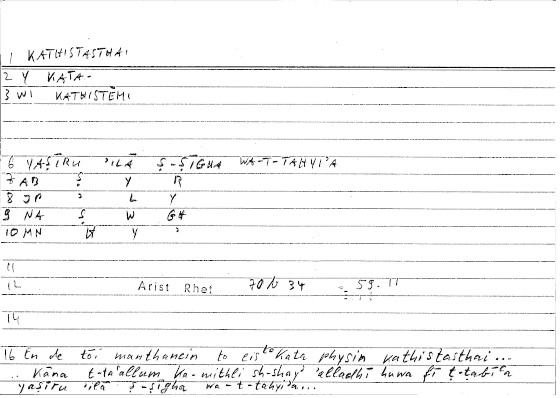 1 KATHISTASTHAI
2 Y KATA-
3 WI KATHISTĒMI
6 YAṢĪRU 'ILĀ Ṣ-ṢĪGHA WA-T-TAHYI'A
7 AB Ṣ Y R
8 JP ' L Y
9 NA Ṣ W GH
10 MN H Y '
11
12 Arist Rhet 70 34 = 59.11
14
16 En de tōi manthanein to eis to kata physin kathistasthai...
.. Kāna t-ta'allum ka-mithli sh-shay' 'alladhī huwa fī ṭ-ṭabī'a
yaṣīru 'ilā ṣ-ṣīgha wa-t-tahyi'a...